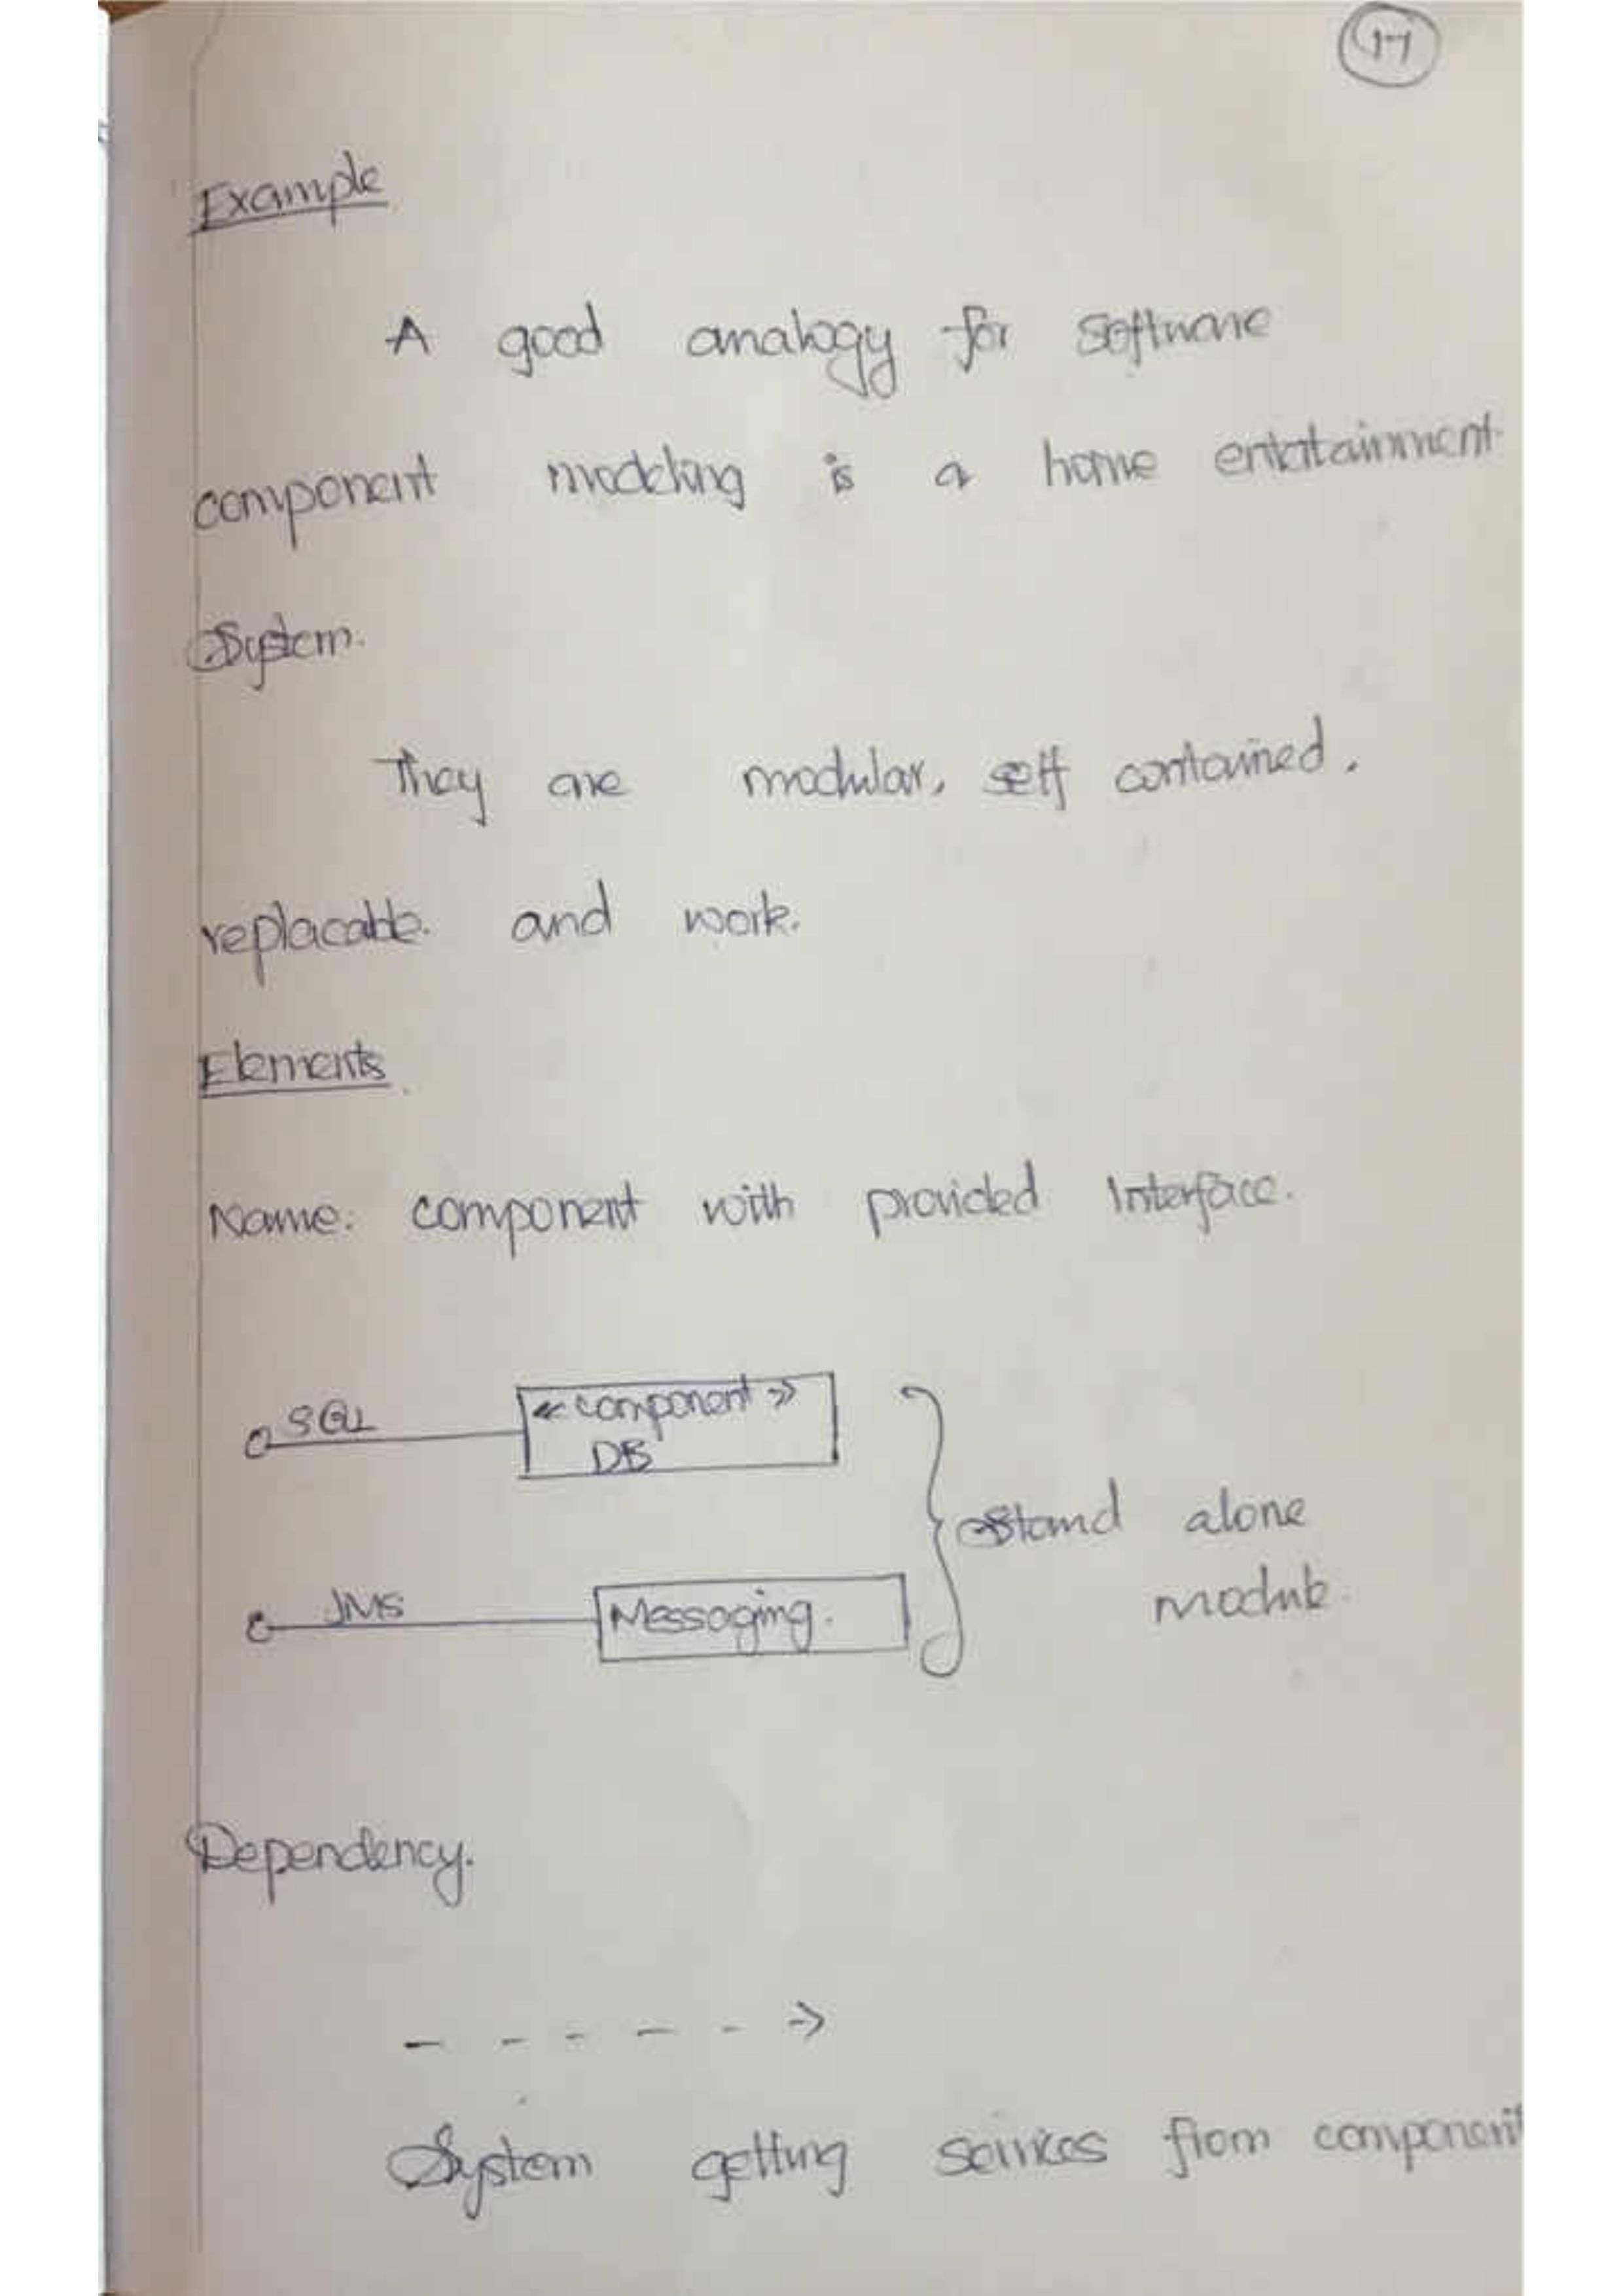 17
Example
A good analogy for software
component modeling is a home entatainment
System.
They are modular, self contained.
replacable. and work.
Elements
Name: component with provided Interface.
SQL
<< component >>
DB
Stand alone
module.
JMS
Messaging.
Dependency.
System getting services from component